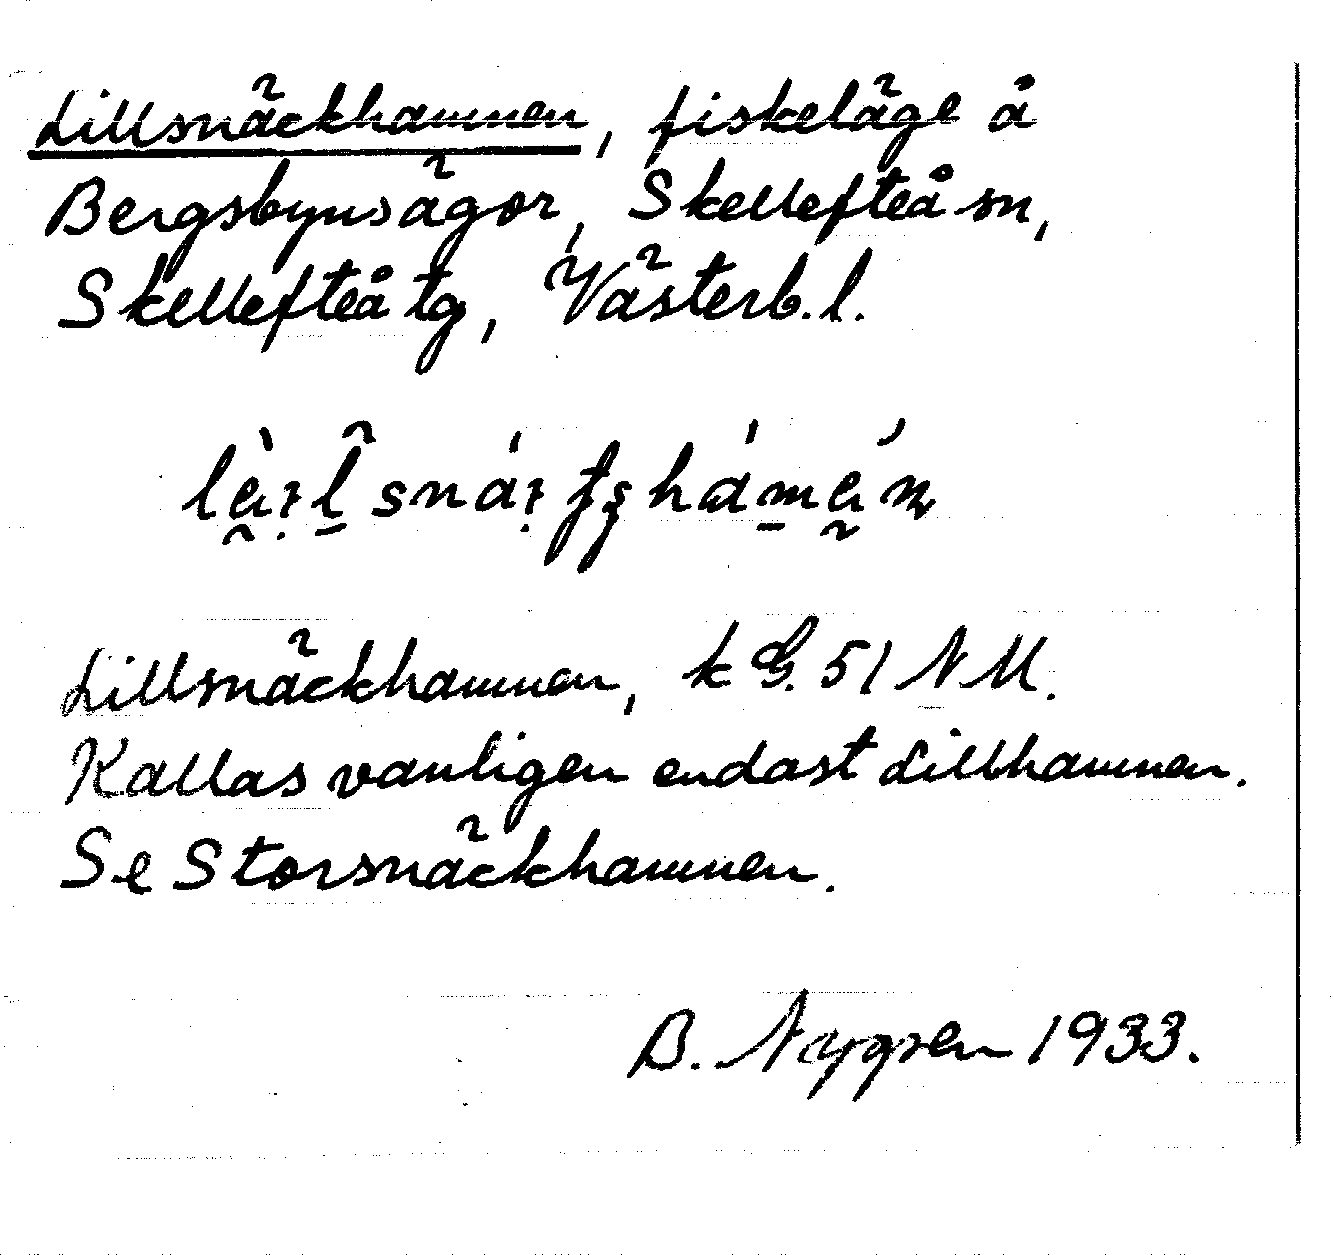 Lillsnäckhamnen, fiskeläge å
Bergsbynsägor, Skellefteå sn,
Skellefteå tg, Västerb. l.
Lillsnäckhamnen, k G. 51 NM.
Kallas vanligen endast Lillhamnen.
Se Storsnäckhamnen.
B. Nygren 1933.